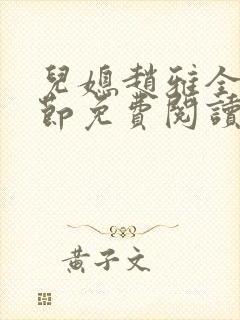 兒媳趙雅全
節免費閱讀
黃子文